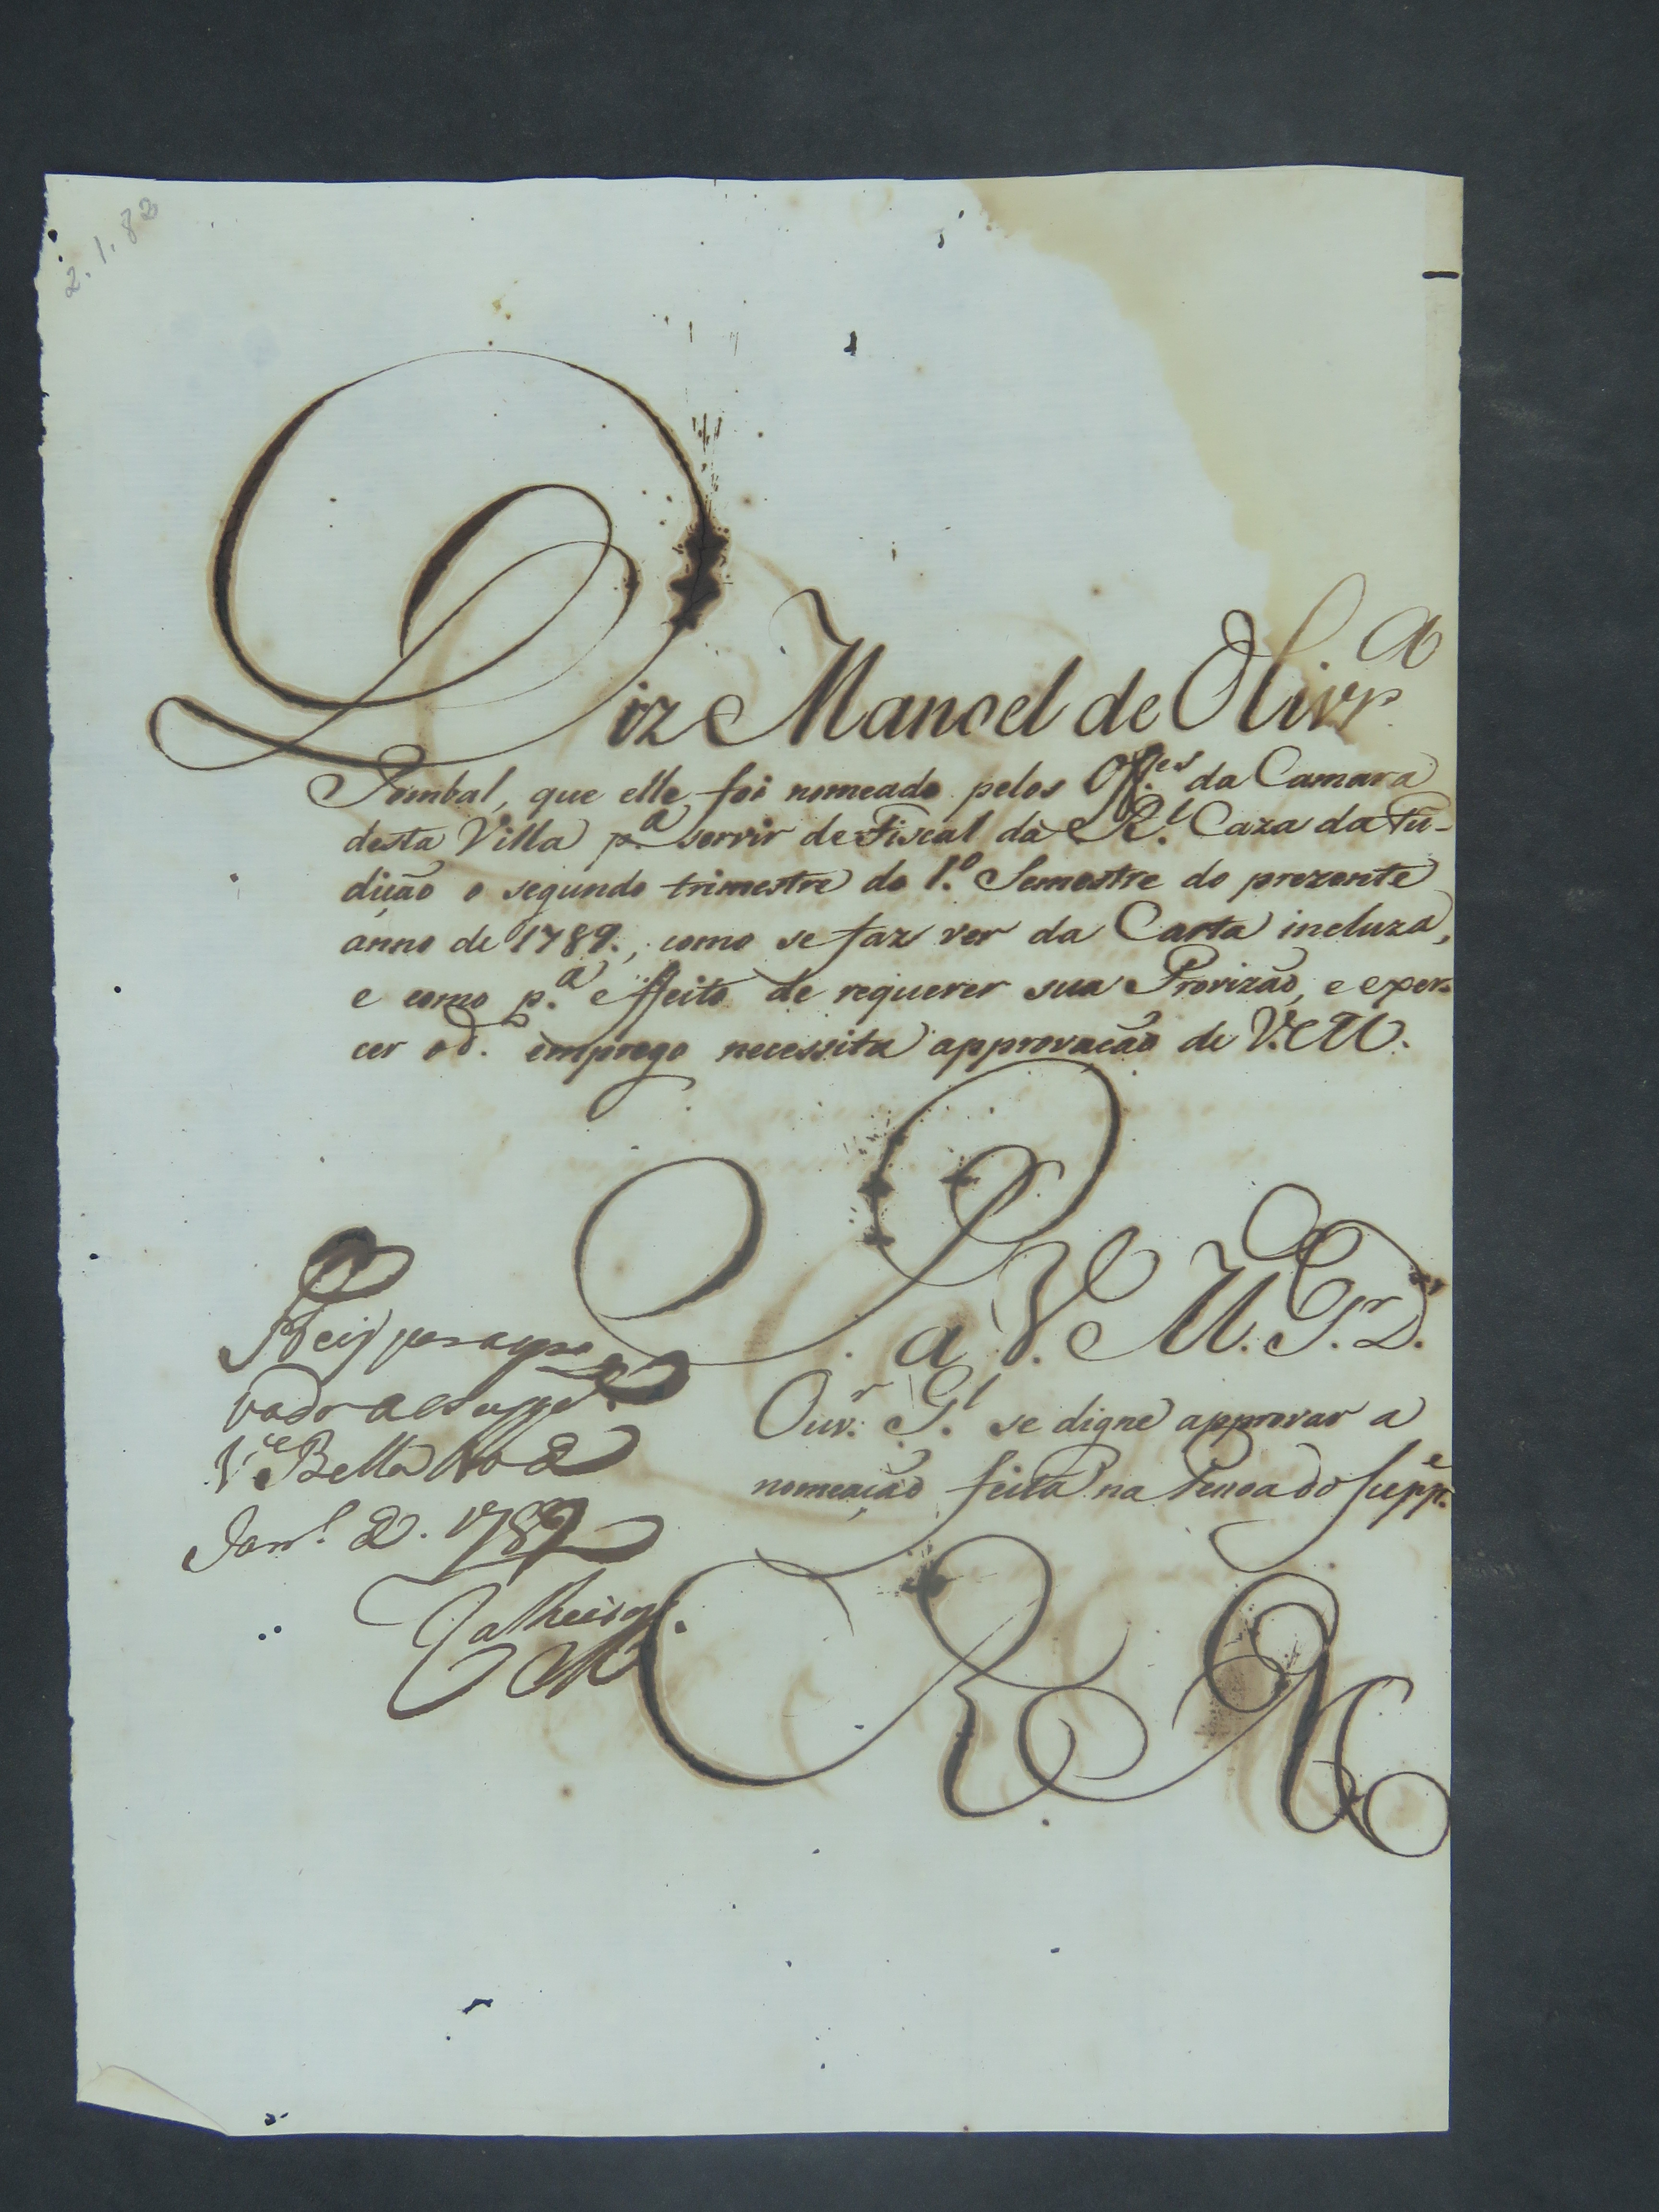 2.1.82
Diz Manoel de Olivr.ª
Pombal, que elle foi nomeado pelos Off.es da Camara
desta Villa p.ª servir de Fiscal da R.l Caza da Fũ-
dição o segundo trimestre do 1.º Semestre do prezente
anno de 1789., como se faz ver da Carta incluza,
e como p.ª effeito de requerer sua Provizão, e exer-
cer o d.º emprego necessita approvação de V.M.
P. a V. M. S.r D.r
Ouv.r G.l se digne approvar a
nomeação feita na Pessoa do Supp.e
E R M
Hei por apro
vado ao supp.e
V.a Bella
Janr.o 2. de 1789